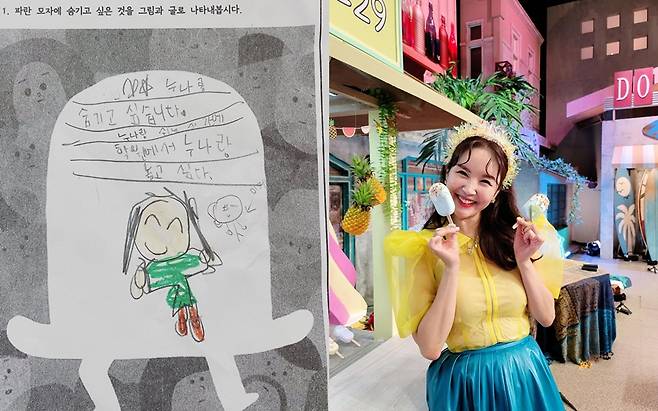 1. 파란 모자에 숨기고 싶은 것을 그림과 글로 나타내봅시다.
누나를
숨기고 싶습니다.
누나랑
에서 누나랑
놀고 싶다.
29
DO